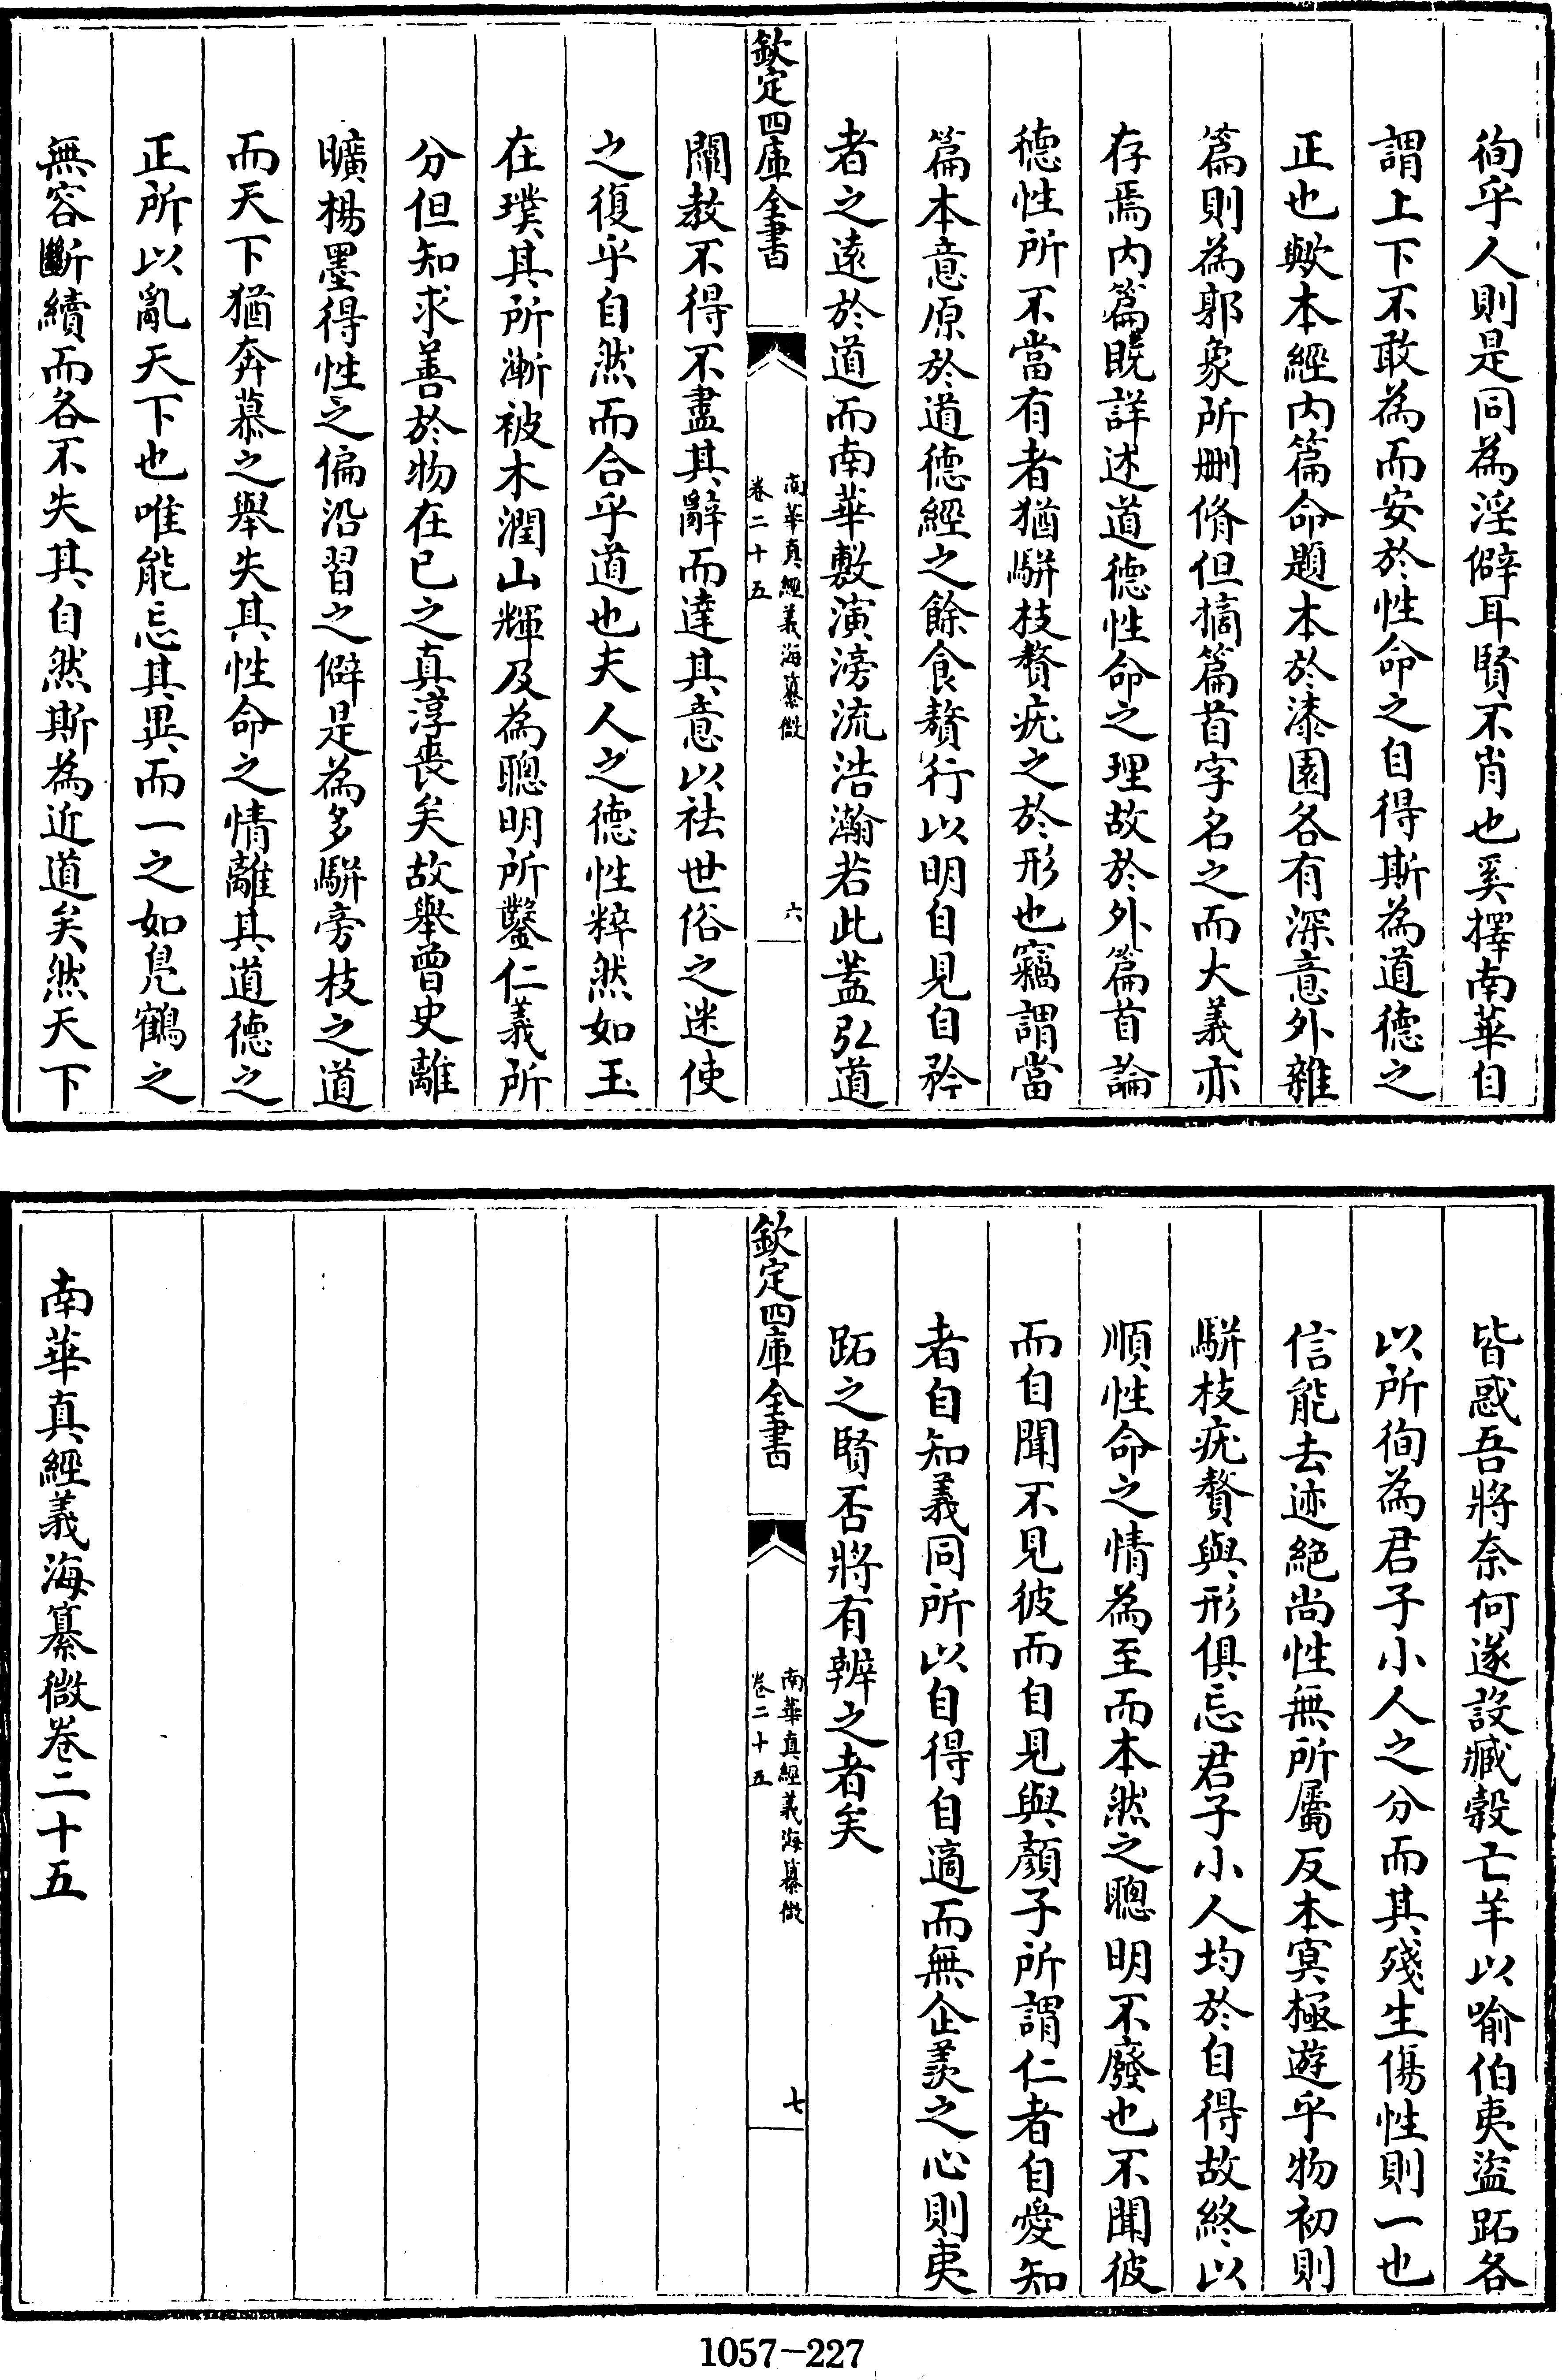 徇乎人則是同為淫僻耳賢不肖也奚擇南華自
謂上下不敢為而安於性命之自得斯為道德之
正也歟本經内篇命題本於漆園各有深意外雜
篇則為郭象所刪脩但摘篇首字名之而大義亦
存焉内篇既詳述道德性命之理故於外篇首論
德性所不當有者猶駢枝贅疣之於形也竊謂當
篇本意原於道德經之餘食贅行以明自見自矜
者之逺於道而南華敷演滂流浩瀚若此葢弘道
欽定四庫全書
南華真經義海纂微
卷二十五
六
闡教不得不盡其辭而達其意以祛世俗之迷使
之復乎自然而合乎道也夫人之德性粹然如玉
在璞其所漸被木潤山輝及為聰明所鑿仁義所
分但知求善於物在已之真淳喪矣故舉曾史離
曠楊墨得性之偏沿習之僻是為多駢旁枝之道
而天下猶奔慕之舉失其性命之情離其道德之
正所以亂天下也唯能忘其異而一之如鳬鶴之
無容斷續而各不失其自然斯為近道矣然天下
皆惑吾將奈何遂設臧榖亡羊以喻伯夷盜跖各
以所徇為君子小人之分而其殘生傷性則一也
信能去迹絶尚性無所屬反本㝠極遊乎物初則
駢枝疣贅與形俱忘君子小人均於自得故終以
順性命之情為至而本然之聰明不廢也不聞彼
而自聞不見彼而自見與顔子所謂仁者自愛知
者自知義同所以自得自適而無企羨之心則夷
跖之賢否將有辨之者矣
欽定四庫全書
南華真經義海纂微
卷二十五
七
南華真經義海纂微卷二十五
1057-227